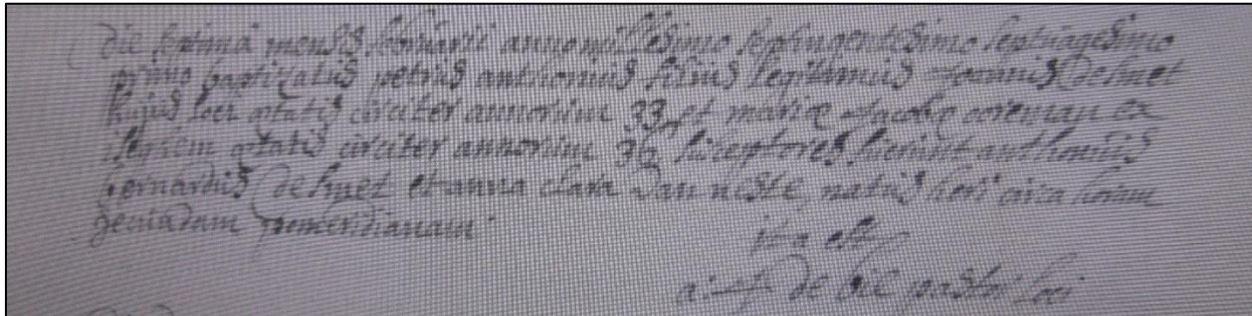 die septima mensis februarii anno millesimo septingentesimo septuagesimo
primo baptizatus petrus anthonius filius legitimus Joannis Desmet
hujus loci ætatis circiter annorum 33, et mariæ Jacobæ coreman ex
ætatis circiter annorum 36 susceptores fuerunt anthonius
bernardus Desmet et anna clara Van neste, natus heri circa horam
pomeridianam
ita est
a: F De bie pastor loci